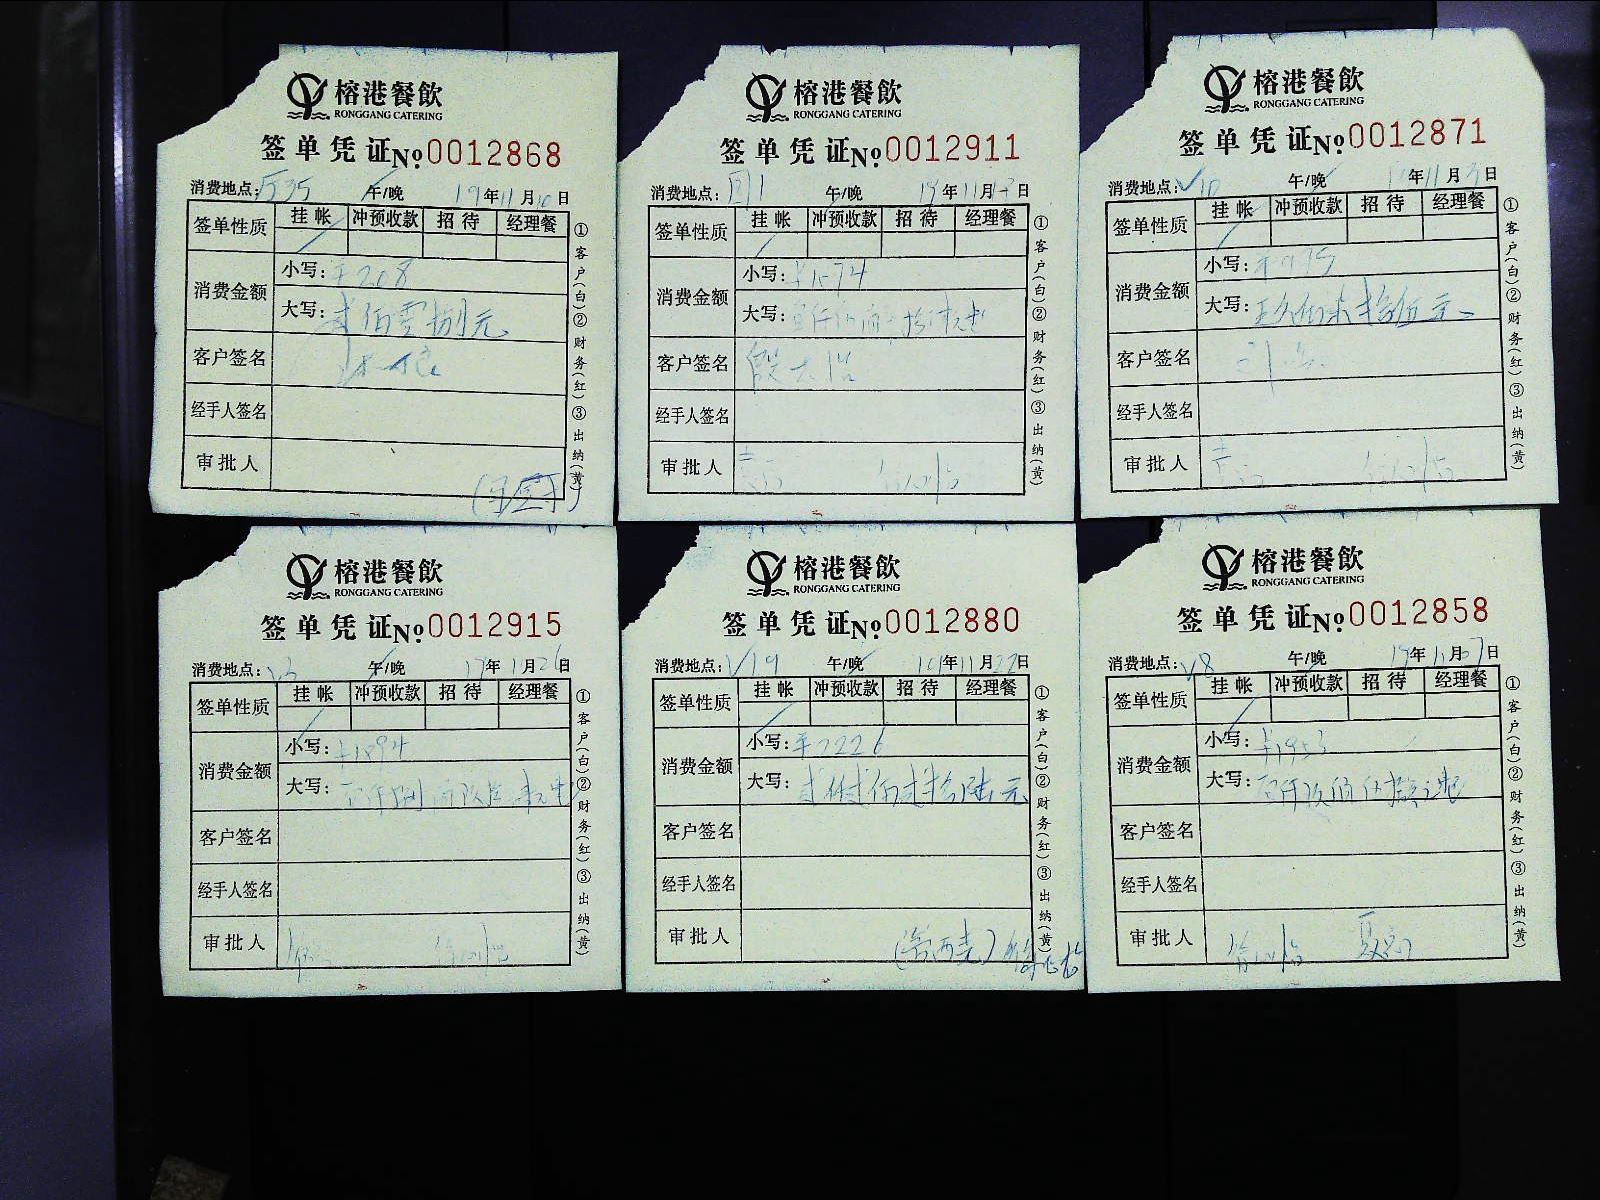 榕港餐飲
RONGGANG CATERING
签单凭证 №0012868
消费地点: 厅35 午/晚 19年11月10日
签单性质 挂帐 冲预收款 招待 经理餐
消费金额 小写: ¥208
大写: 贰佰零捌元
客户签名
经手人签名
审批人
①客户(白)②财务(红)③出纳(黄)
榕港餐飲
RONGGANG CATERING
签单凭证 №0012911
消费地点: 午/晚 年11月 日
签单性质 挂帐 冲预收款 招待 经理餐
消费金额 小写:
大写:
客户签名
经手人签名
审批人
①客户(白)②财务(红)③出纳(黄)
榕港餐飲
RONGGANG CATERING
签单凭证 №0012871
消费地点: V10 午/晚 年11月 日
签单性质 挂帐 冲预收款 招待 经理餐
消费金额 小写: ¥975
大写: 玖佰柒拾伍元
客户签名
经手人签名
审批人
①客户(白)②财务(红)③出纳(黄)
榕港餐飲
RONGGANG CATERING
签单凭证 №0012915
消费地点: 午/晚 年11月26日
签单性质 挂帐 冲预收款 招待 经理餐
消费金额 小写: ¥1894
大写:
客户签名
经手人签名
审批人
①客户(白)②财务(红)③出纳(黄)
榕港餐飲
RONGGANG CATERING
签单凭证 №0012880
消费地点: V19 午/晚 年11月 日
签单性质 挂帐 冲预收款 招待 经理餐
消费金额 小写: ¥2226
大写: 贰仟贰佰贰拾陆元
客户签名
经手人签名
审批人
①客户(白)②财务(红)③出纳(黄)
榕港餐飲
RONGGANG CATERING
签单凭证 №0012858
消费地点: V8 午/晚 19年11月 日
签单性质 挂帐 冲预收款 招待 经理餐
消费金额 小写: ¥1953
大写:
客户签名
经手人签名
审批人
①客户(白)②财务(红)③出纳(黄)